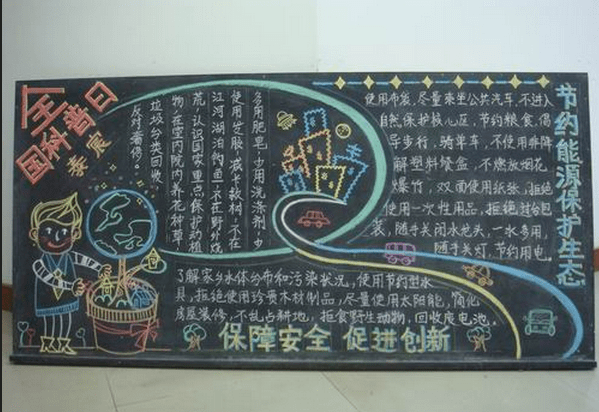 全国科普日
多用肥皂,少用洗涤剂,少
使用 减卡救树,不在
江河湖泊钓鱼,不在野外烧
荒,认识国家重点保护动植
物,在室内院内养花种草,
垃圾分类回收,
反对奢侈。
使用布袋,尽量乘坐公共汽车,不进入
自然保护核心区,节约粮食,倡
导步行,骑单车,不使用非降
解塑料餐盒,不燃放烟花
爆竹,双面使用纸张,拒绝
使用一次性用品,拒绝过台包
装,随手关闭水龙头,一水多用,
随手关灯,节约用电。
节约能源保护生态
了解家乡水体分布和污染状况,使用节约型水
具,拒绝使用珍贵木材制品,尽量使用太阳能,简化
房屋装修,不乱占耕地,拒食野生动物,回收废电池。
保障安全 促进创新